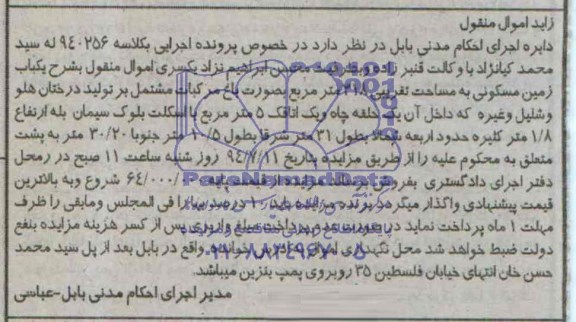 زاید اموال منقول
دایره اجرای احکام مدنی بابل در نظر دارد در خصوص پرونده اجرایی بکلاسه ۹٤۰۲۵۶ له سید
محمد کیانژاد با وکالت قنبر زاده و بطرفیت ابراهیم نژاد یکسری اموال منقول بشرح یکباب
زمین مسکونی به مساحت تقریبی متر مربع بصورت باغ مرکبات مشتمل بر تولید درختان هلو
و شلیل و غیره که داخل آن یک حلقه چاه ویک اتاقک ۵ متر مربع با اسکلت بلوک سیمان بله ارتفاع
۱/۸ متر کلیره حدود اربعه شمالا بطول ۳۱ متر شرقا بطول متر جنوبا ۳۰/۲۰ متر به پشت
متعلق به محکوم علیه را از طریق مزایده بتاریخ ۹٤/۷/۱۱ روز شنبه ساعت ۱۱ صبح در رمحل
دفتر اجرای دادگستری بفروش برساند مزایده از قیمت پایه ۶٤/۰۰۰/ شروع وبه بالاترین
قیمت پیشنبادی واگذار میگردد برنده مزایده باید ۱۰ درصد بها را فی المجلس ومابقی را ظرف
مهلت ۱ ماه پرداخت نماید در صورت عدم پرداخت مبلغ واریزی پس از کسر هزینه مزایده بنفع
دولت ضبط خواهد شد محل نگهداری اموال واقع در بابل بعد از پل سید محمد
حسن خان انتهای خیابان فلسطین ۳۵ روبروی پمپ بنزین میباشد.
مدیر اجرای احکام مدنی بابل-عباسی
ParsNamadData
۰۲۱-۸۸۳٤۹۶۷۰-۵